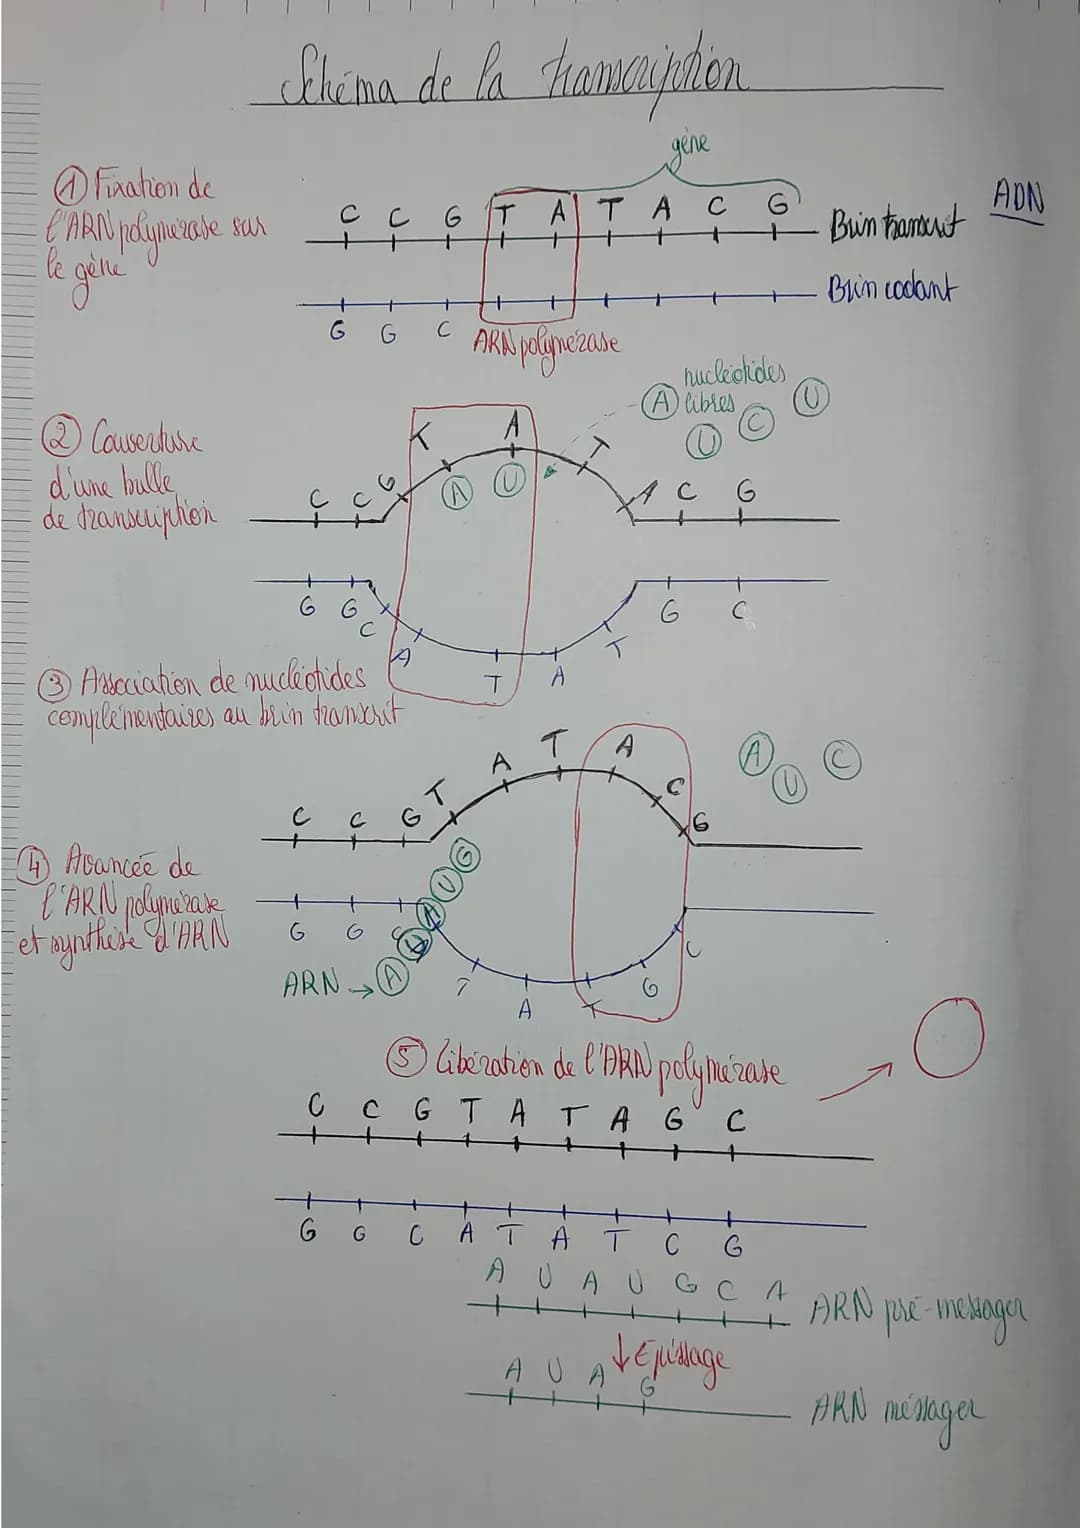 Schéma de la transcription
gène
① Fixation de
l'ARN polymérase sur
le gène
C C G T A T A C G
Brin transcrit
ADN
Brin codant
G G C
ARN polymérase
nucléotides
libres
A U C U
② Couverture
d'une bulle
de transcription
C C G T A T A C G
A U
G G C A T A T G C
③ Association de nucléotides
complémentaires au brin transcrit
C C G T A T A C G
A U C
④ Avancée de
l'ARN polymérase
et synthèse d'ARN
G G C T A T G C
ARN → A U A U G
⑤ libération de l'ARN polymérase
C C G T A T A G C
G G C A T A T C G
A U A U G C A
ARN pré-messager
↓ Epissage
A U A G
ARN messager